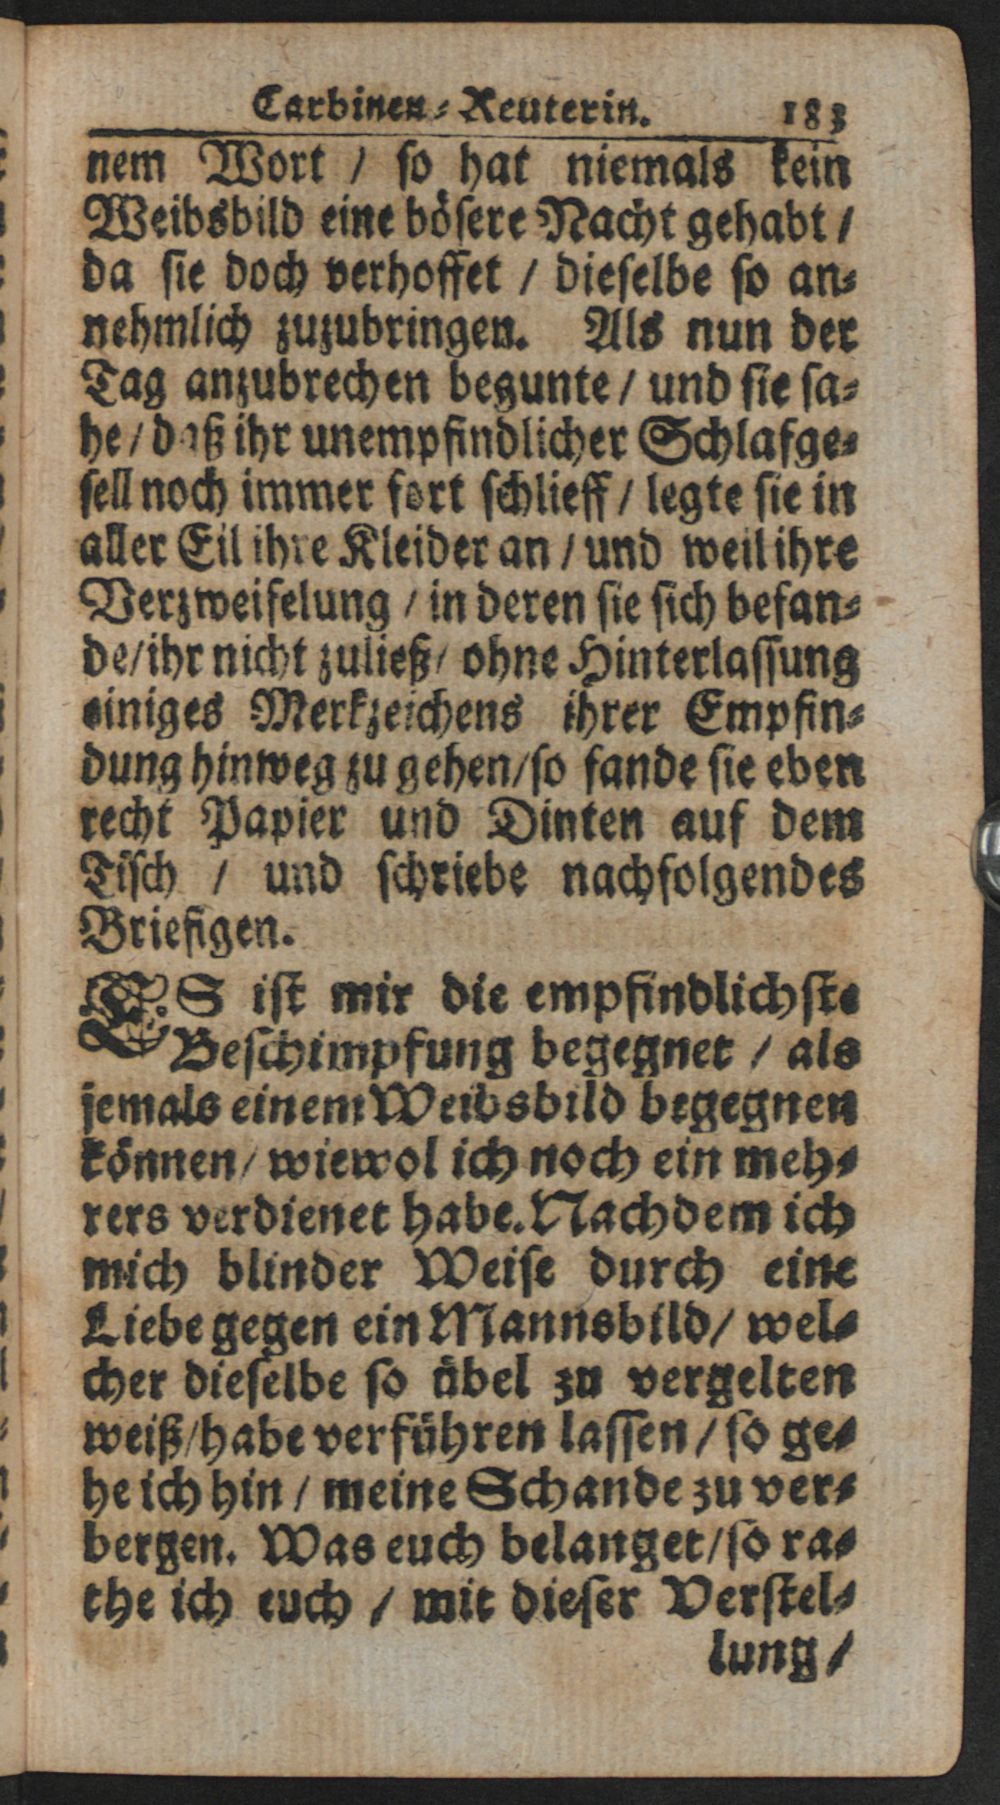 Carbinen-Reuterin. 183
nem Wort / so hat niemals kein
Weibsbild eine bösere Nacht gehabt /
da sie doch verhoffet / dieselbe so an-
nehmlich zuzubringen. Als nun der
Tag anzubrechen begunte / und sie sa-
he / daß ihr unempfindlicher Schlafge-
sell noch immer fort schlieff / legte sie in
aller Eil ihre Kleider an / und weil ihre
Verzweifelung / in deren sie sich befan-
de / ihr nicht zuließ / ohne Hinterlassung
einiges Merkzeichens ihrer Empfin-
dung hinweg zu gehen / so fande sie eben
recht Papier und Dinten auf dem
Tisch / und schriebe nachfolgendes
Briefigen.
ES ist mir die empfindlichste
Beschimpfung begegnet / als
jemals einem Weibsbild begegnen
können / wiewol ich noch ein meh-
rers verdienet habe. Nachdem ich
mich blinder Weise durch eine
Liebe gegen ein Mannsbild / wel-
cher dieselbe so übel zu vergelten
weiß / habe verführen lassen / so ge-
he ich hin / meine Schande zu ver-
bergen. Was euch belanget / so ra-
the ich euch / mit dieser Verstel-
lung /